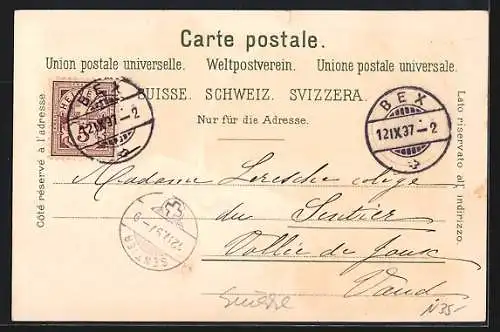 Carte postale.
Union postale universelle. Weltpostverein. Unione postale universale.
SUISSE. SCHWEIZ. SVIZZERA.
Nur für die Adresse.
Côté réservé à l'adresse.
Lato riservato all'indirizzo.
5
BEX
12 IX 97 - 2
BEX
12 IX 97 - 2
Madame
du Sentier
Vallée de Joux
Vaud
SENTIER
12 IX 97 - 9
Suisse